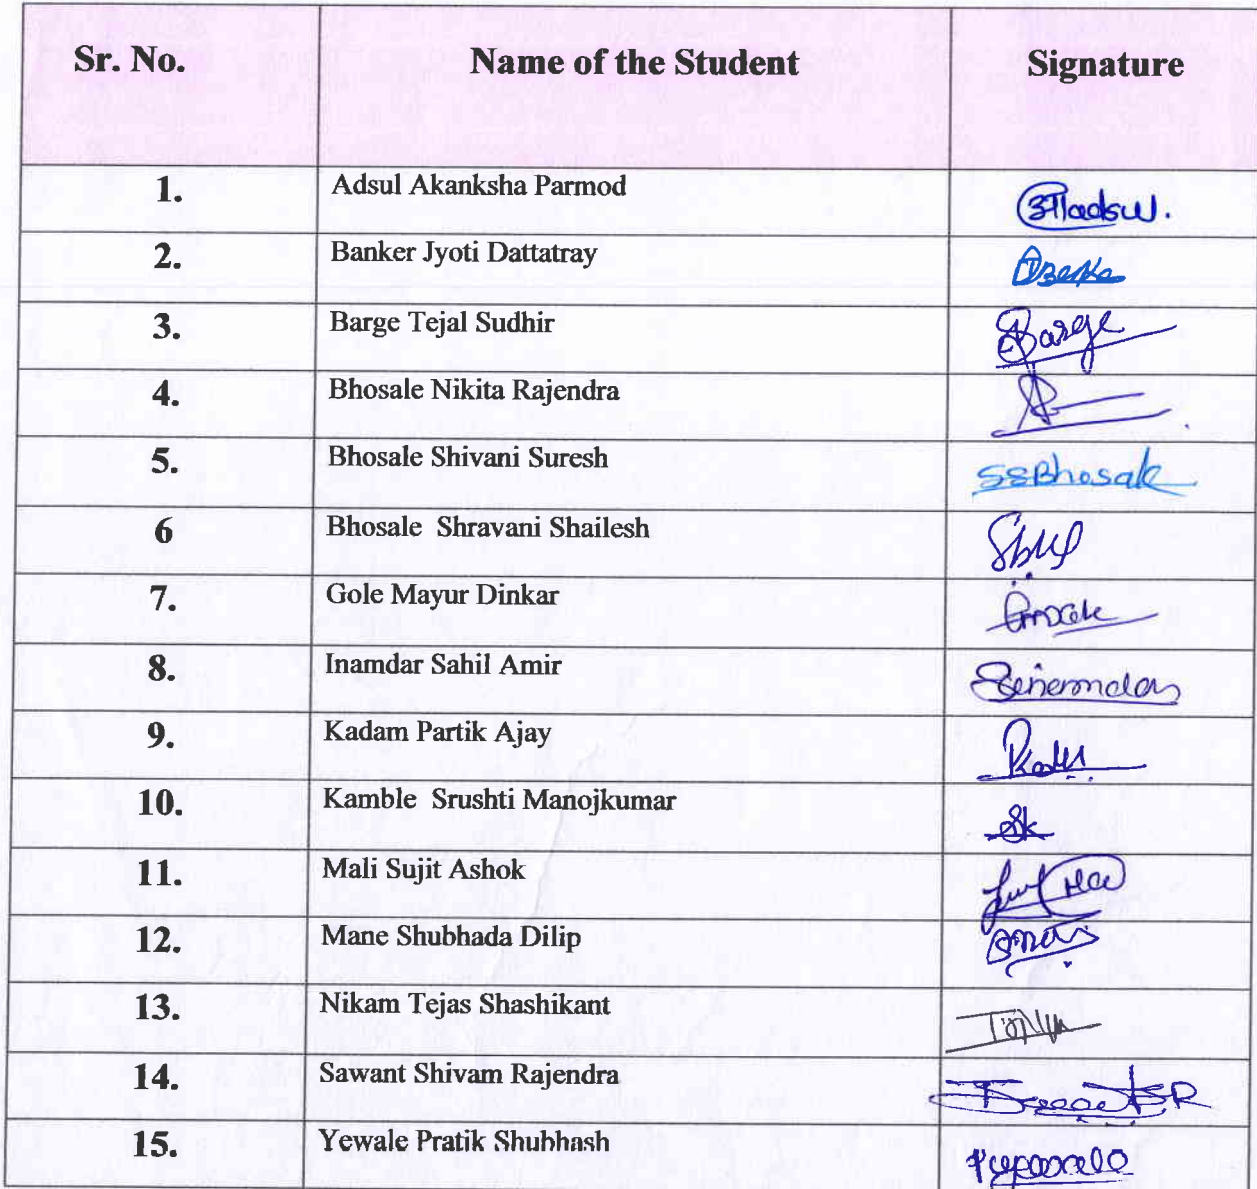 Sr. No. Name of the Student Signature
1. Adsul Akanksha Parmod
2. Banker Jyoti Dattatray
3. Barge Tejal Sudhir Barge
4. Bhosale Nikita Rajendra
5. Bhosale Shivani Suresh SSBhosale
6 Bhosale Shravani Shailesh
7. Gole Mayur Dinkar
8. Inamdar Sahil Amir
9. Kadam Partik Ajay
10. Kamble Srushti Manojkumar Sk
11. Mali Sujit Ashok
12. Mane Shubhada Dilip
13. Nikam Tejas Shashikant
14. Sawant Shivam Rajendra
15. Yewale Pratik Shubhash